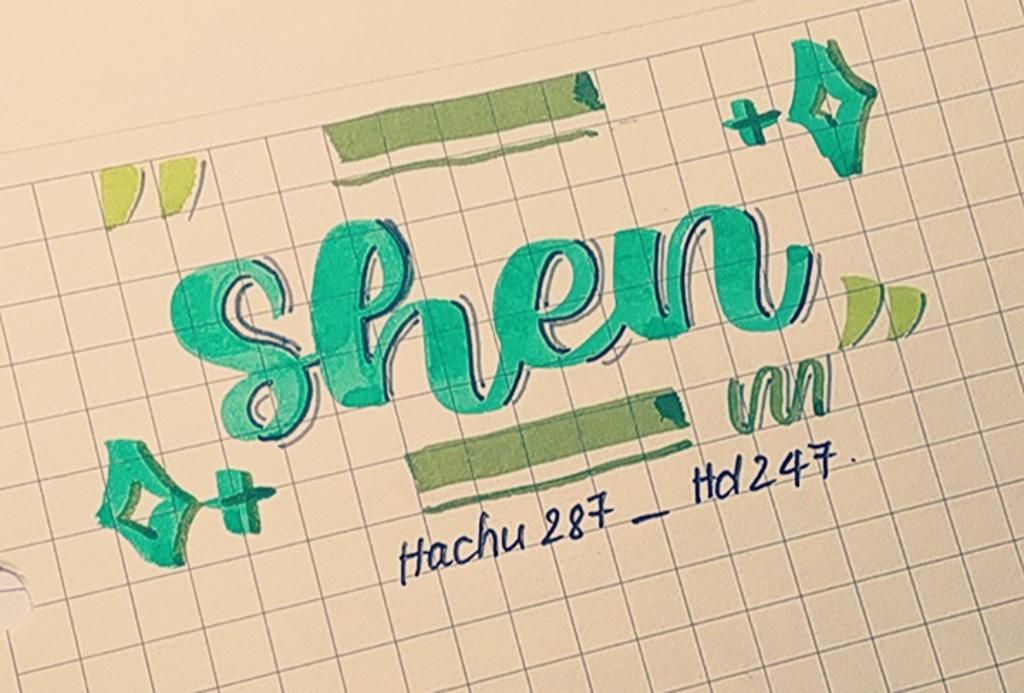 " shen "
Hachu 287 _ Hd 247.